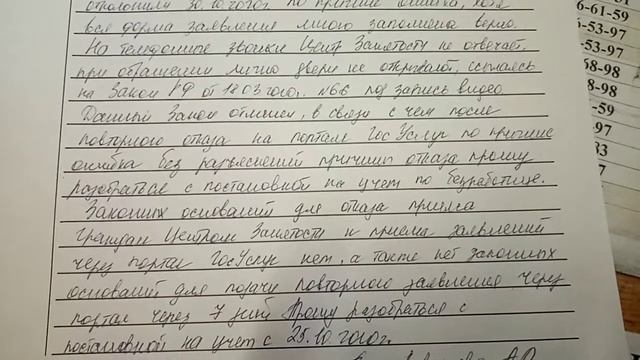 отклонили 30.10.2020г. по причине ошибка, хотя
вся форма заявления мною заполнена верно.
На телефонные звонки Центр Занятости не отвечает,
при обращении лично двери не открывают, ссылаясь
на Закон РФ от 18.03.2020г. №66 под запись видео
Данный Закон отменен, в связи с чем после
повторного отказа на портале ГосУслуг по причине
ошибка без разъяснений причины отказа прошу
разобраться с постановкой на учет по безработице.
Законных оснований для отказа приема
Граждан Центром Занятости и приема заявлений
через портал ГосУслуг нет, а также нет законных
оснований для подачи повторного заявления через
портал через 7 дней Прошу разобраться с
постановкой на учет с 25.10.2020г.
6-61-59
-53-97
-53-97
68-98
-98
-59
-97
83